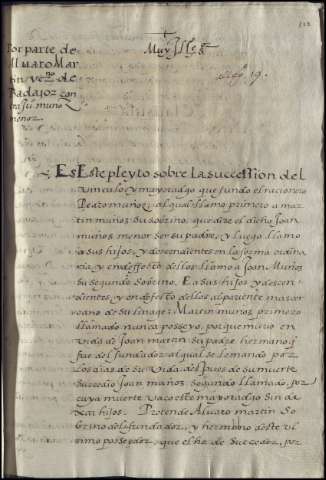 Por parte de
Aluaro Mar
tin vezº de
Badajoz con
tra Juº muñoz
menor.
Muy Illes
Es Este pleyto sobre la succession del
vinculo y mayoradgo que fundo el racionero
Pedro muñoz, al qual llamo primero a mar
tin muñoz su sobrino, que dize el dicho Joan
muñoz menor ser su padre, y luego llamo
a sus hijos, y decendientes en la forma ordina
ria y en deffecto dellos llamo a Joan Muñoz
su segundo Sobrino. E a sus hijos y descen
dientes, y en defecto dellos al pariente mas cer
cano de su linage: Martin muñoz primero
llamado nunca posseyo, porque murio en
vida de Joan martin su padre, hermano q̃
fue del fundador al qual se lo mando por
los dias de su vida despues de su muerte
sucedio Joan muñoz segundo llamado, por
cuya muerte vaco este mayoradgo sin de
xar hijos. Pretende Aluaro martin So
brino del fundador, y hermano deste ul
timo posseedor, que el ha de succeder, por